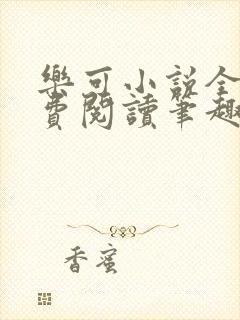 樂可小說全
費閱讀筆趣
香蜜